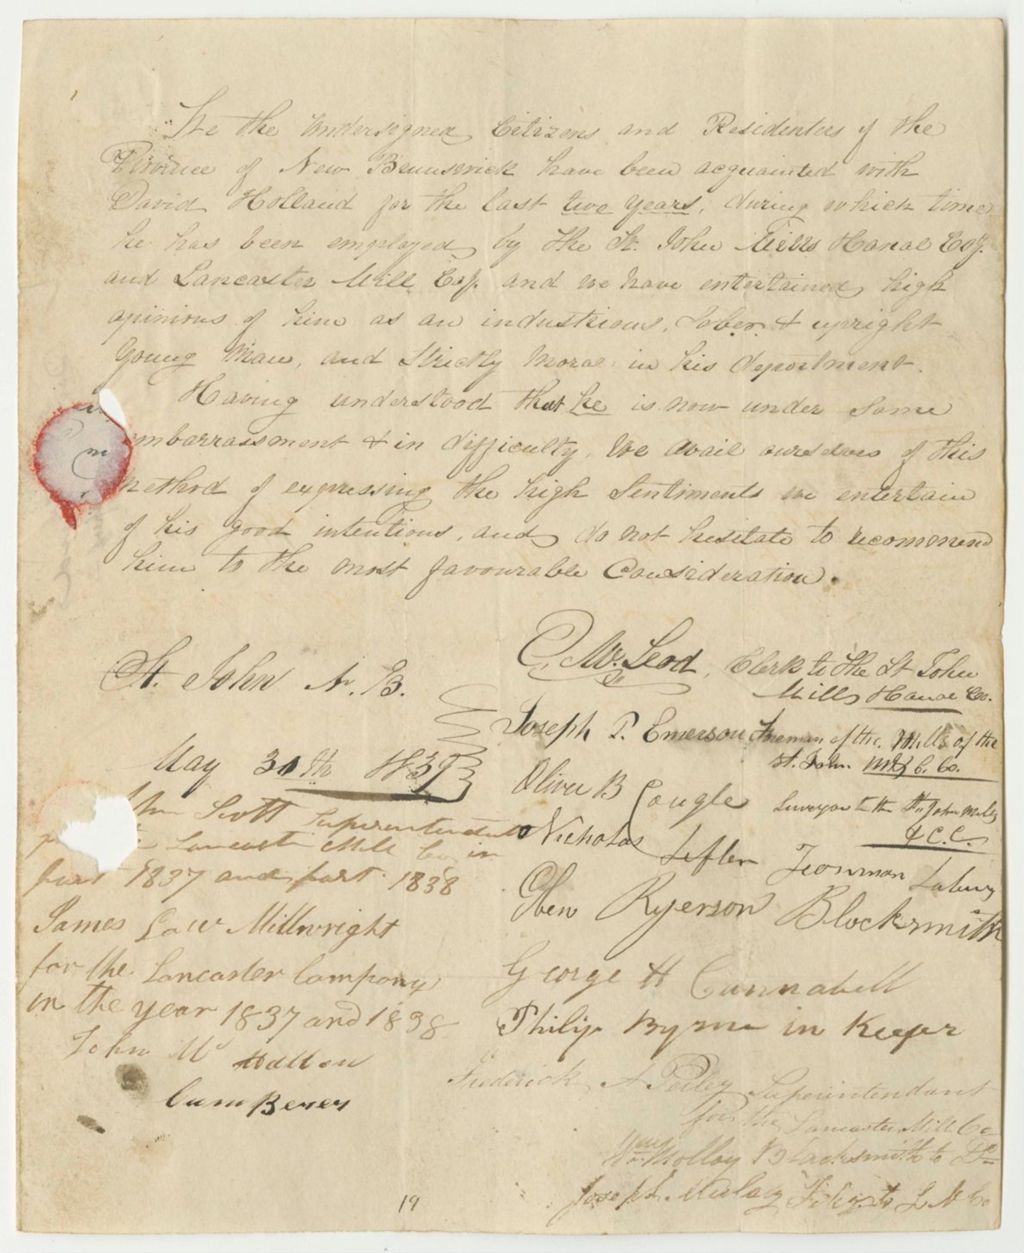 We the undersigned Citizens and Residenters of the
Province of New Brunswick have been acquainted with
David Holland for the last two years, during which time
he has been employed by the St. John Mills Kanal Coy.
and Lancaster Mill Coy. and we have entertained high
opinions of him as an industrious, Sober & upright
young Man, and Strictly Moral in his deportment.
Having understood that he is now under Some
embarrassment & in difficulty, We avail ourselves of this
method of expressing the high Sentiments we entertain
of his good intentions, and do not hesitate to recommend
him to the most favourable Consideration.
St. John N. B.
May 30th 1839
John Scott Superintendent
Lancaster Mill Co. in
part 1837 and part 1838
James Law Millwright
for the Lancaster Company
in the year 1837 and 1838
John Mc
C. McLeod, Clerk to the St John
Mills Kanal Co.
Joseph P. Emerson Foreman of the Mills of the
St. John M & C. Co.
Oliver B Cougle Surveyor to the St. John Mills
& C. C.
Nicholas Lefler
Eben Ryerson Blocksmith
George H Cunnabell
Philip Byrne in Keeper
Frederick A Perley Superintendant
for the Lancaster Mill Co
Wm Molloy Blacksmith to
Joseph
19